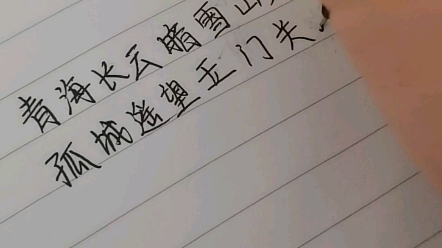 青海长云暗雪山
孤城遥望玉门关